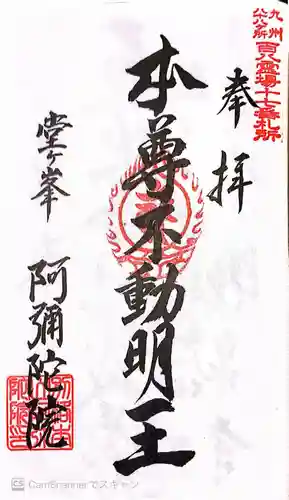 九州
八十八ヶ所
百八霊場十七番札所
奉拝
本尊不動明王
堂ヶ峯
阿彌陀院
CS CamScannerでスキャン